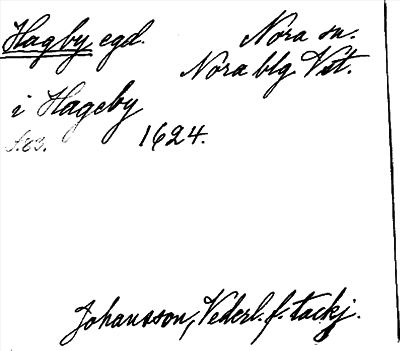 Hagby, egd. Nora sn.
Nora blg Vst.
i Hageby
s. 83. 1624.
Johansson, Vederl. f. tackj.